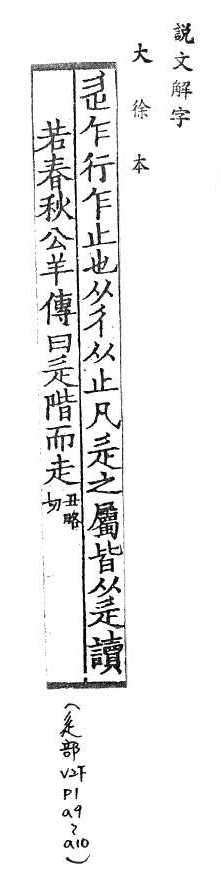 説文解字
大徐本
辵乍行乍止也从彳从止凡辵之屬皆从辵讀
若春秋公羊傳曰辵階而走丑略切
(辵部
V2下
P1
a9
~
a10)